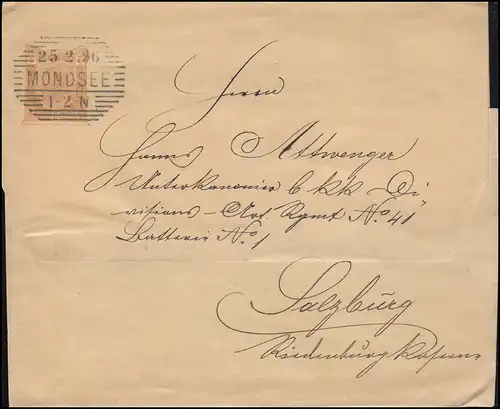 25 2 96
MONDSEE
1-2 N
Herrn
Hanns Attwenger
Unterkanonier b. kk Di-
visions-Art. Rgmt No. 41
Batterie No. 1
Salzburg
Riedenburg Kaserne